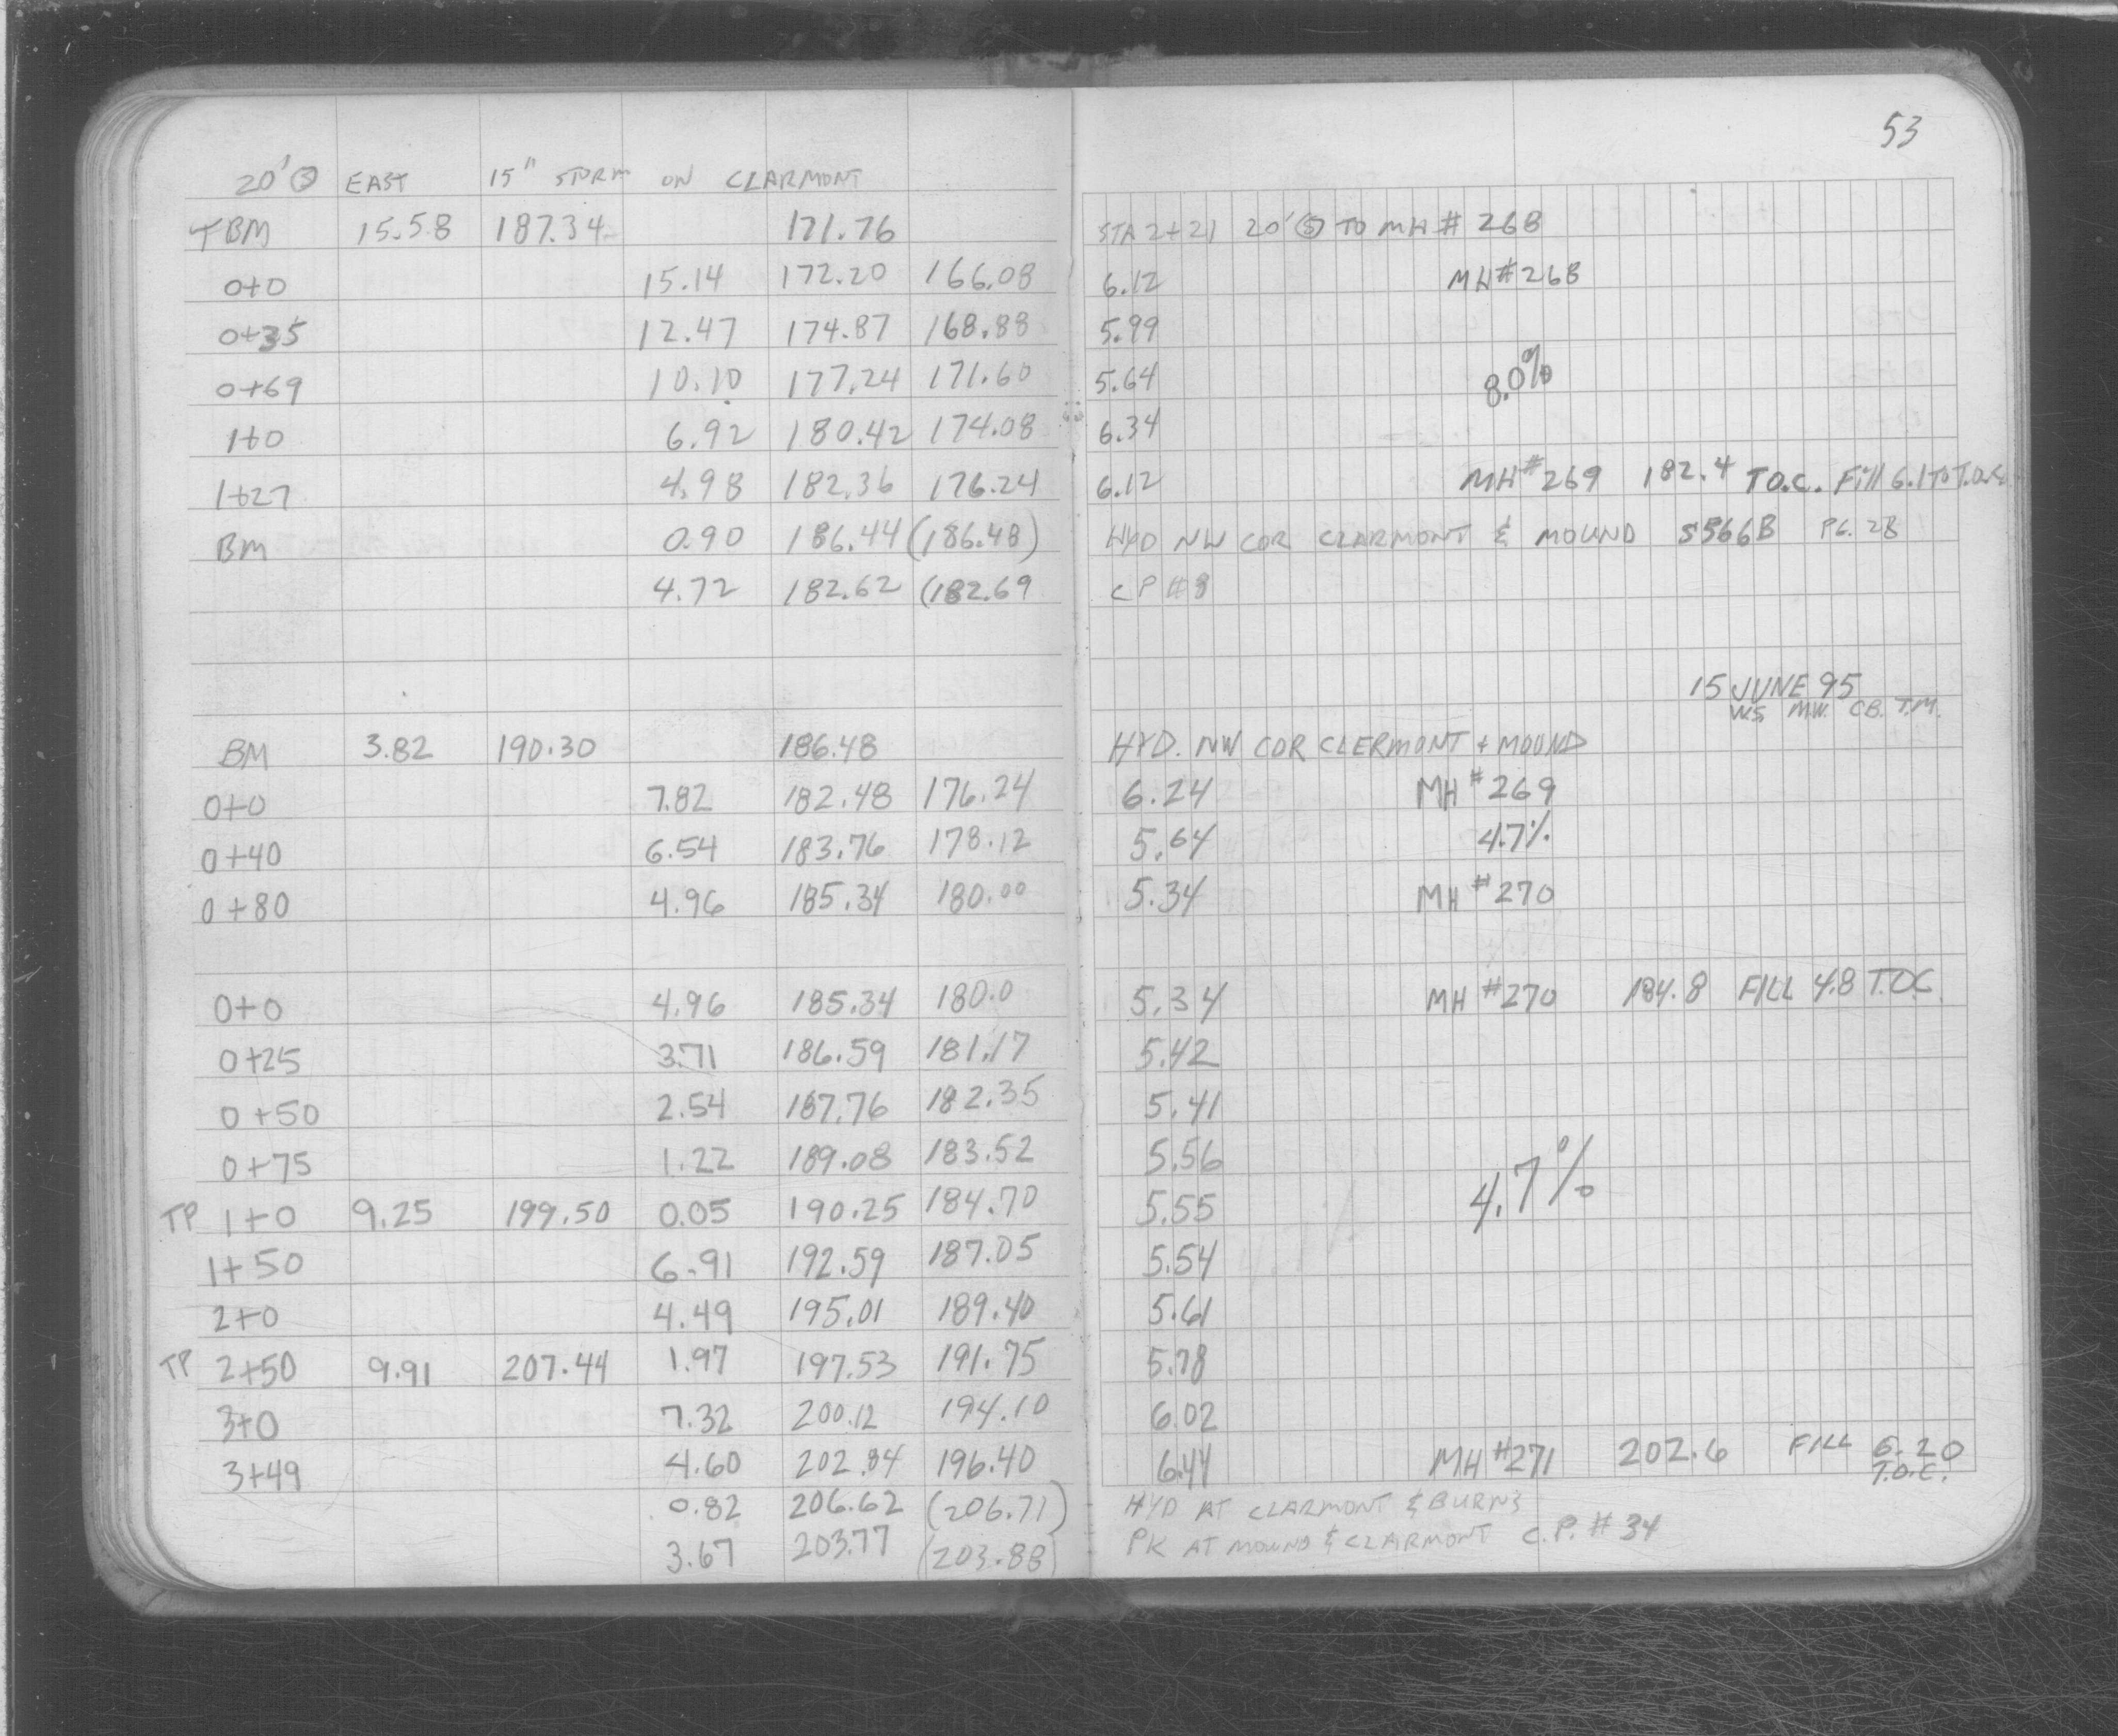 53
20' Ⓢ EAST 15" STORM ON CLARMONT
TBM 15.58 187.34 171.76 STA 2+21 20' Ⓢ TO MH # 268
0+0 15.14 172.20 166.08 6.12 MH #268
0+35 12.47 174.87 168.88 5.99
0+69 10.10 177.24 171.60 5.64 8.0%
1+0 6.92 180.42 174.08 6.34
1+27 4.98 182.36 176.24 6.12 MH #269 182.4 T.O.C. Fill 6.1 TO T.O.C.
BM 0.90 186.44 (186.48) HYD NW COR CLARMONT & MOUND S566B PG. 28
4.72 182.62 (182.69 CP #8
15 JUNE 95
W.S. M.W. C.B. T.M.
BM 3.82 190.30 186.48 HYD. NW COR CLERMONT + MOUND
0+0 7.82 182.48 176.24 6.24 MH #269
0+40 6.54 183.76 178.12 5.64 4.7%
0+80 4.96 185.34 180.00 5.34 MH #270
0+0 4.96 185.34 180.0 5.34 MH #270 184.8 FILL 4.8 T.O.C
0+25 3.71 186.59 181.17 5.42
0+50 2.54 187.76 182.35 5.41
0+75 1.22 189.08 183.52 5.56
TP 1+0 9.25 199.50 0.05 190.25 184.70 5.55 4.7%
1+50 6.91 192.59 187.05 5.54
2+0 4.49 195.01 189.40 5.61
TP 2+50 9.91 207.44 1.97 197.53 191.75 5.78
3+0 7.32 200.12 194.10 6.02
3+49 4.60 202.84 196.40 6.44 MH #271 202.6 FILL 6.20
T.O.C.
0.82 206.62 (206.71) HYD AT CLARMONT & BURNS
3.67 203.77 (203.88) PK AT MOUND & CLAIRMONT C.P. # 34